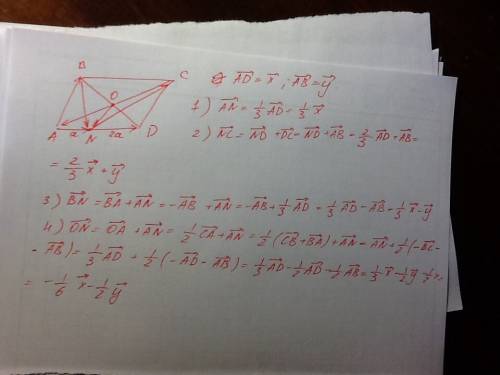 B
C
O
A a N 2a D
AD⃗ = x⃗ ; AB⃗ = y⃗
1) AN⃗ = 1/3 AD⃗ = 1/3 x⃗
2) NC⃗ = ND⃗ + DC⃗ = ND⃗ + AB⃗ = 2/3 AD⃗ + AB⃗ =
= 2/3 x⃗ + y⃗
3) BN⃗ = BA⃗ + AN⃗ = -AB⃗ + AN⃗ = -AB⃗ + 1/3 AD⃗ = 1/3 AD⃗ - AB⃗ = 1/3 x⃗ - y⃗
4) ON⃗ = OA⃗ + AN⃗ = 1/2 CA⃗ + AN⃗ = 1/2 (CB⃗ + BA⃗) + AN⃗ = AN⃗ + 1/2 (-BC⃗ -
- AB⃗) = 1/3 AD⃗ + 1/2 (-AD⃗ - AB⃗) = 1/3 AD⃗ - 1/2 AD⃗ - 1/2 AB⃗ = 1/3 x⃗ - 1/2 y⃗ - 1/2 x⃗ =
= -1/6 x⃗ - 1/2 y⃗